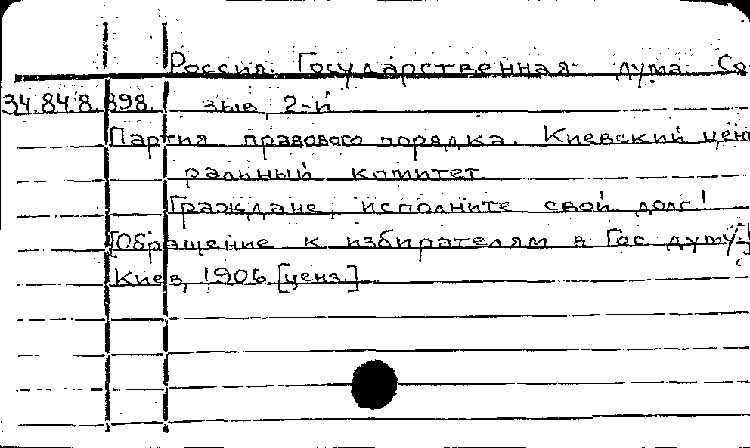 Россия. Государственная дума. Со-
34.84.8.898. зыв, 2-й
Партия правового порядка. Киевский цент
ральный комитет.
Граждане, исполните свой долг!
[Обращение к избирателям в Гос. думу.]
Киев, 1906. [ценз.]